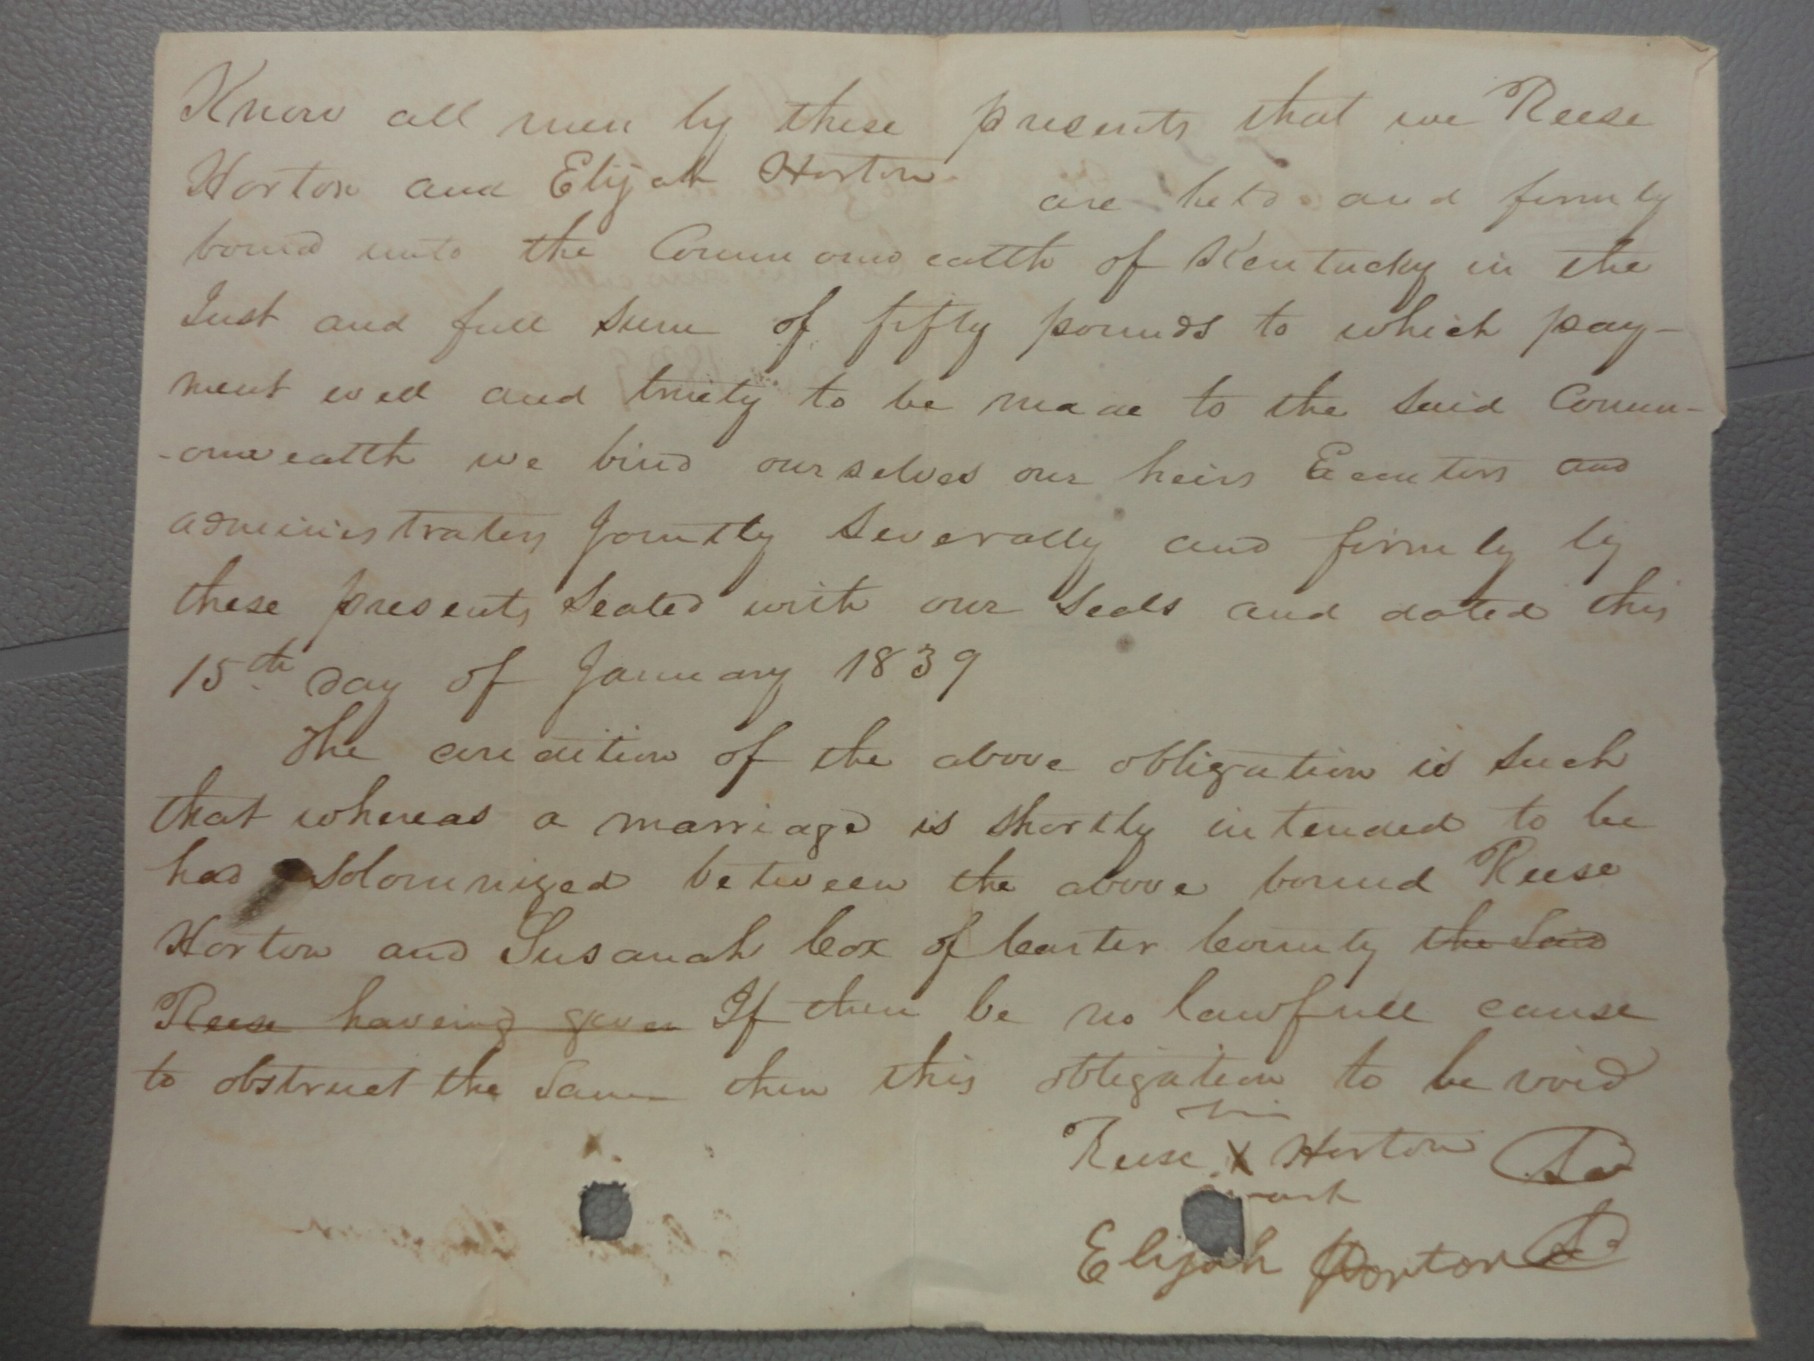 Know all men by these presents that we Reese
Horton and Elijah Horton are held and firmly
bound unto the Commonwealth of Kentucky in the
Just and full sum of fifty pounds to which pay-
ment well and truely to be made to the said Comm-
-onwealth we bind ourselves our heirs Execcutors and
administrators Jointly Severally and firmly by
these presents Sealed with our Seals and dated this
15th day of January 1839
The condition of the above obligation is such
that whereas a marriage is shortly intended to be
had solomnized between the above bound Reese
Horton and Susanah Cox of Carter County the said
Reese haveing given If then be no lawfull cause
to obstruct the same then this obligation to be void
his
Reese X Horton
mark
Elijah Horton